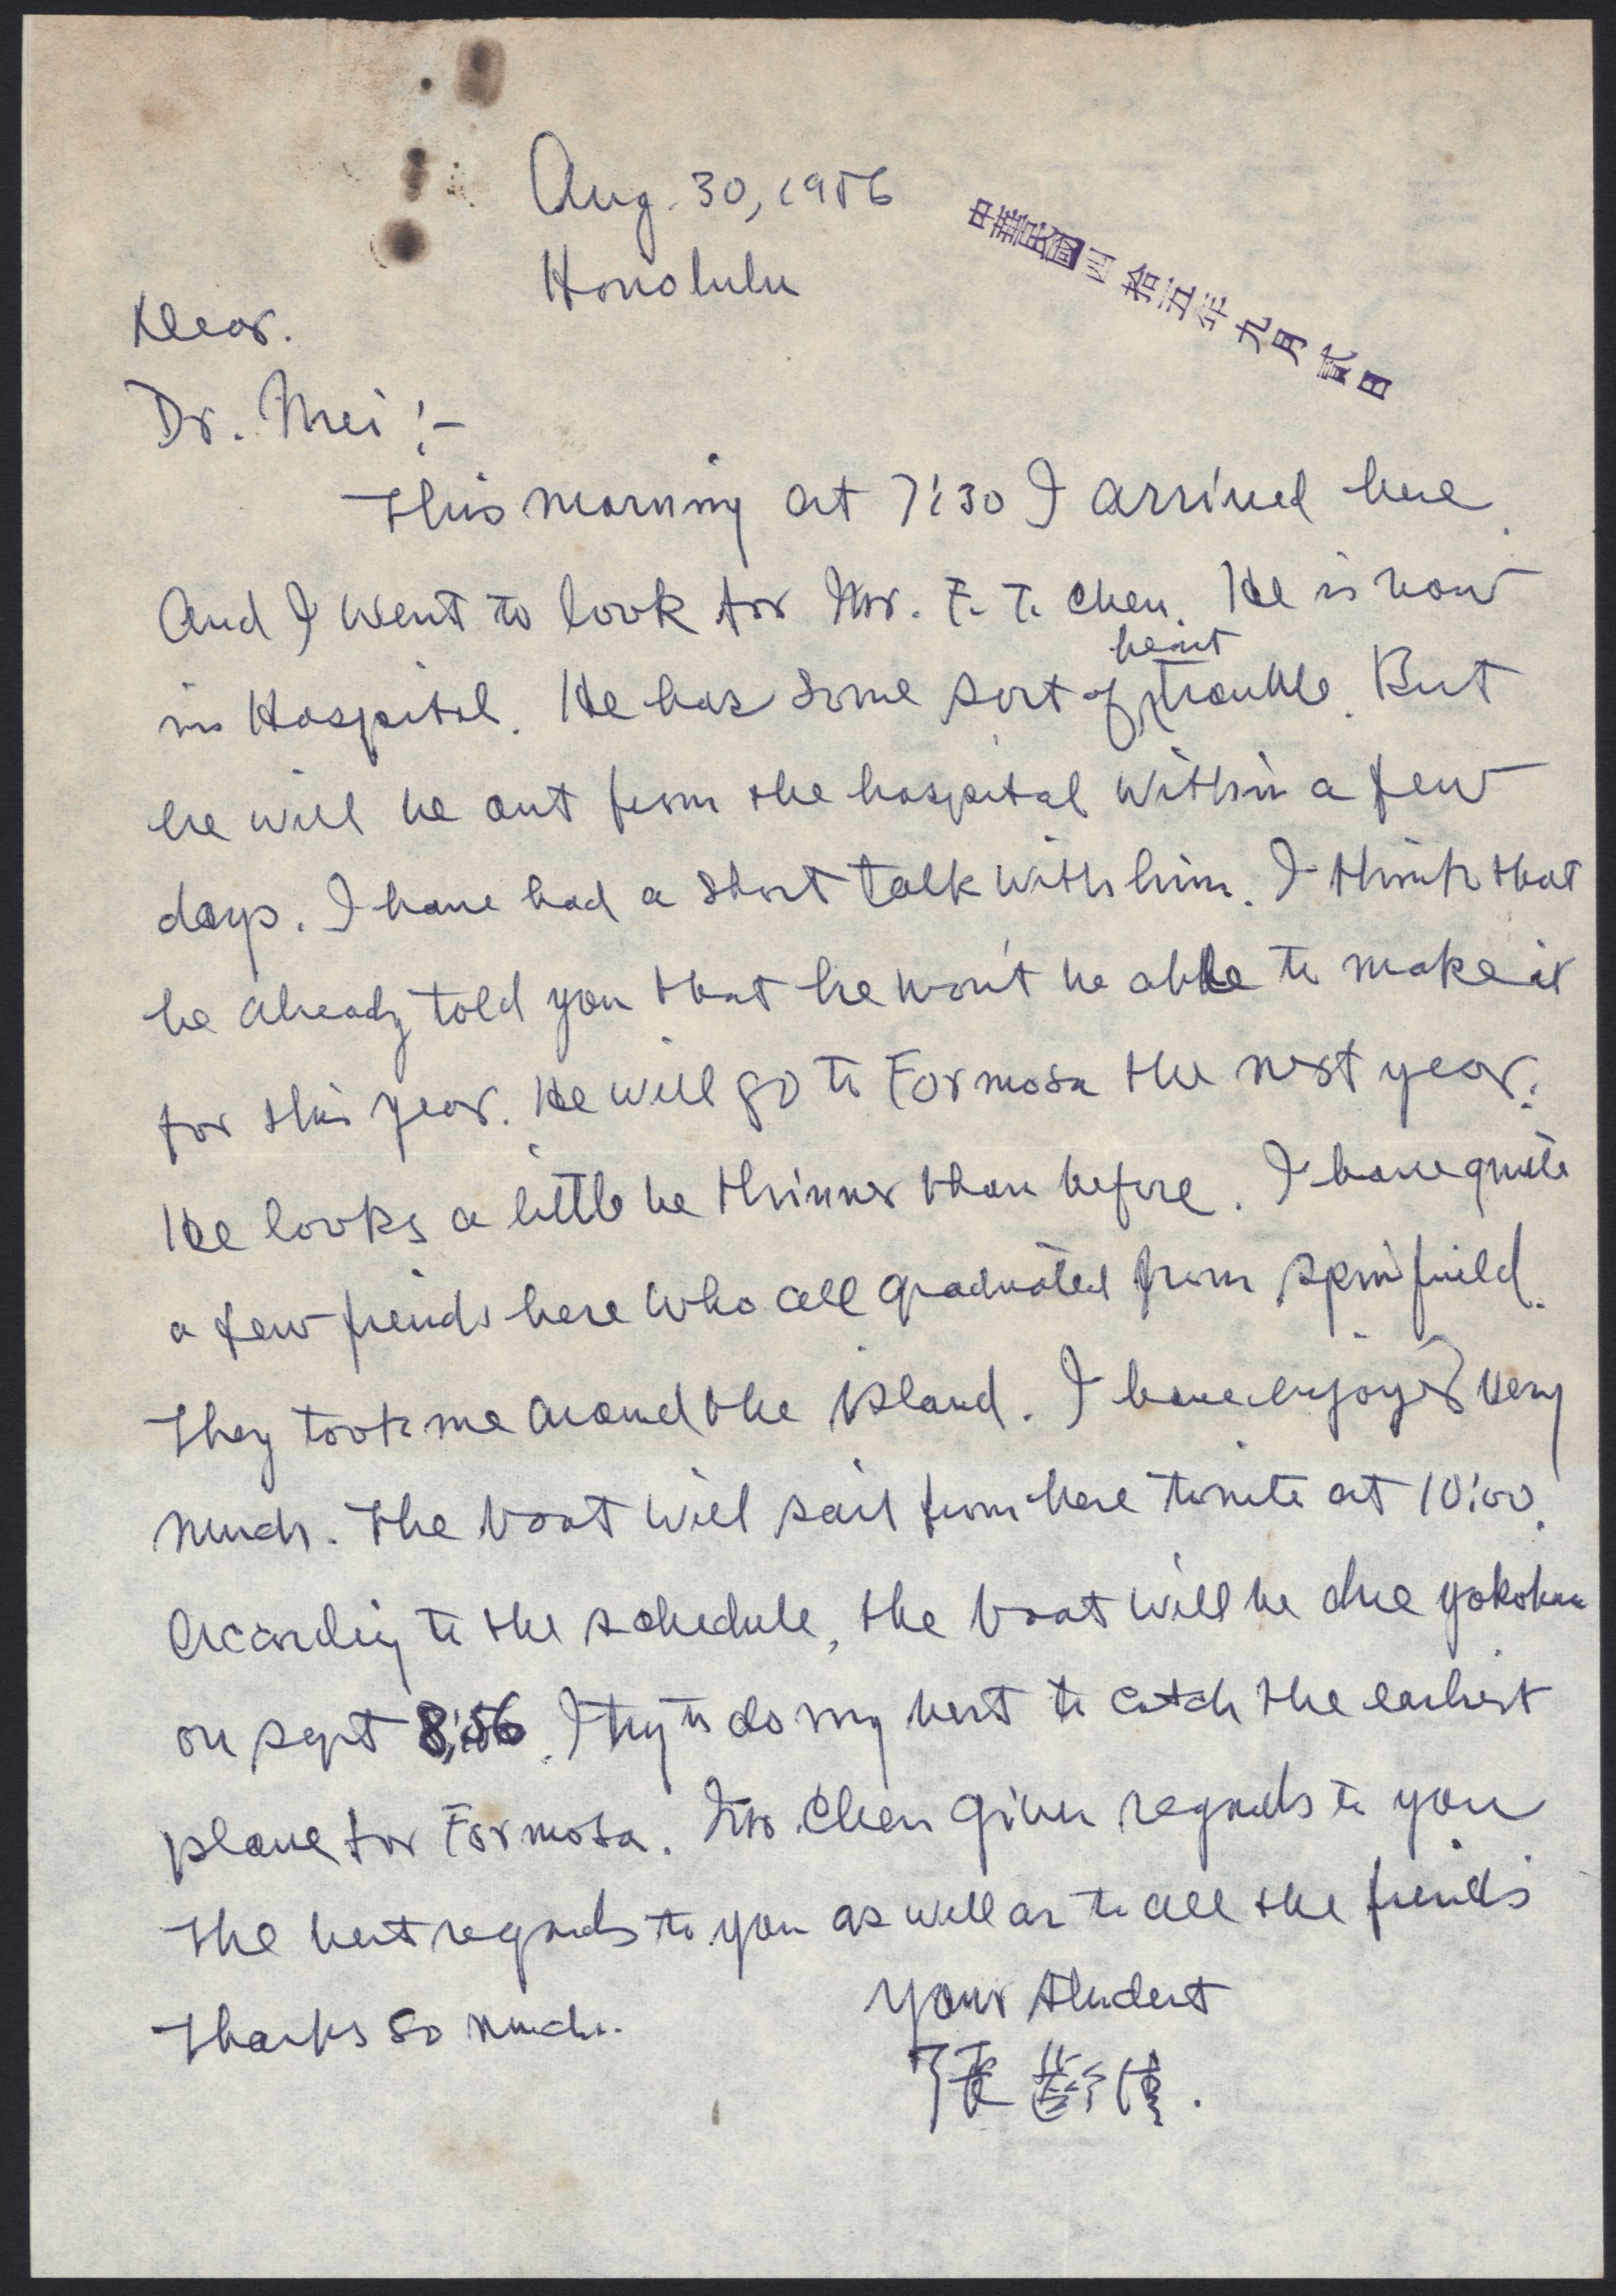 Aug. 30, 1956
中華民國四拾五年九月貳日
Honolulu
Dear.
Dr. Mei :-
This morning at 7:30 I arrived here.
And I went to look for Mr. F. T. Chen. He is now
in Hospital. He has some sort of heart trouble. But
he will be out from the hospital within a few
days. I have had a short talk with him. I think that
he already told you that he won't be able to make it
for this year. He will go to Formosa the next year.
He looks a little be thinner than before. I have quite
a few friends here who all graduated from Sprinfield.
They took me around the island. I have enjoyed very
much. The boat will sail from here tonite at 10:00.
According to the schedule, the boat will be due Yokohama
on Sept 8, 56. I try to do my best to catch the earliest
plane for Formosa. Mr. Chen given regards to you
The best regards to you as well as to all the friends
Your student
Thanks so much.
張齡